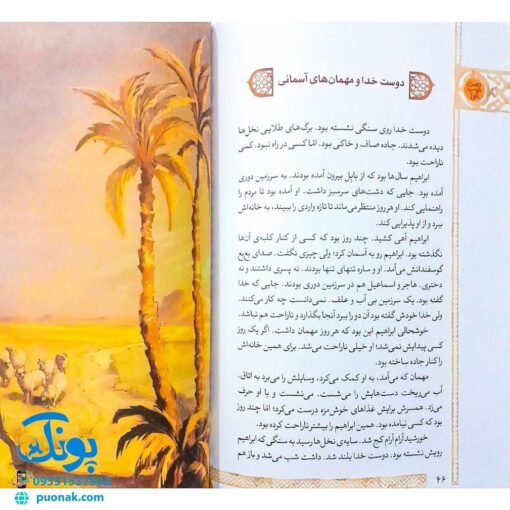 دوست خدا و مهمان‌های آسمانی
دوست خدا روی سنگی نشسته بود. برگ‌های طلایی نخل‌ها
دیده می‌شدند. جاده صاف و خاکی بود. امّا کسی در راه نبود. کسی
ناراحت بود.
ابراهیم سال‌ها بود که از بابِل بیرون آمده بودند. به سرزمین دوری
آمده بود. جایی که دشت‌های سرسبز داشت. او آمده بود تا مردم را
راهنمایی کند. او هر روز منتظر می‌ماند تا تازه واردی را ببیند، به خانه‌اش
ببرد و از او پذیرایی کند.
ابراهیم آهی کشید. چند روز بود که کسی از کنار کلبه‌ی آن‌ها
نگذشته بود. ابراهیم رو به آسمان کرد؛ ولی چیزی نگفت. صدای بع‌بع
گوسفندانش می‌آمد. او و ساره تنهای تنها بودند. نه پسری داشتند و نه
دختری. هاجر و اسماعیل هم در سرزمین دوری بودند. جایی که خدا
گفته بود. یک سرزمین بی آب و علف. نمی‌دانست چه کار می‌کنند.
ولی خدا خودش گفته بود آن دو را ببرد آنجا بگذارد و ناراحت هم نباشد.
خوشحالی ابراهیم این بود که هر روز مهمان داشت. اگر یک روز
کسی پیدایش نمی‌شد؛ او خیلی ناراحت می‌شد. برای همین خانه‌اش
را کنار جاده ساخته بود.
مهمان که می‌آمد، به او کمک می‌کرد، وسایلش را می‌برد به اتاق.
آب می‌ریخت دست‌هایش را می‌شست. می‌نشست و با او حرف
می‌زد. همسرش برایش غذاهای خوش مزه درست می‌کرد؛ امّا چند روز
بود که کسی نیامده بود. همین ابراهیم را پریشان کرده بود.
خورشید آرام آرام کج شد. سایه‌ی نخل‌ها رسید به سنگی که ابراهیم
رویش نشسته بود. دوست خدا بلند شد. داشت شب می‌شد و باز هم
۴۶
پونک
puonak.com